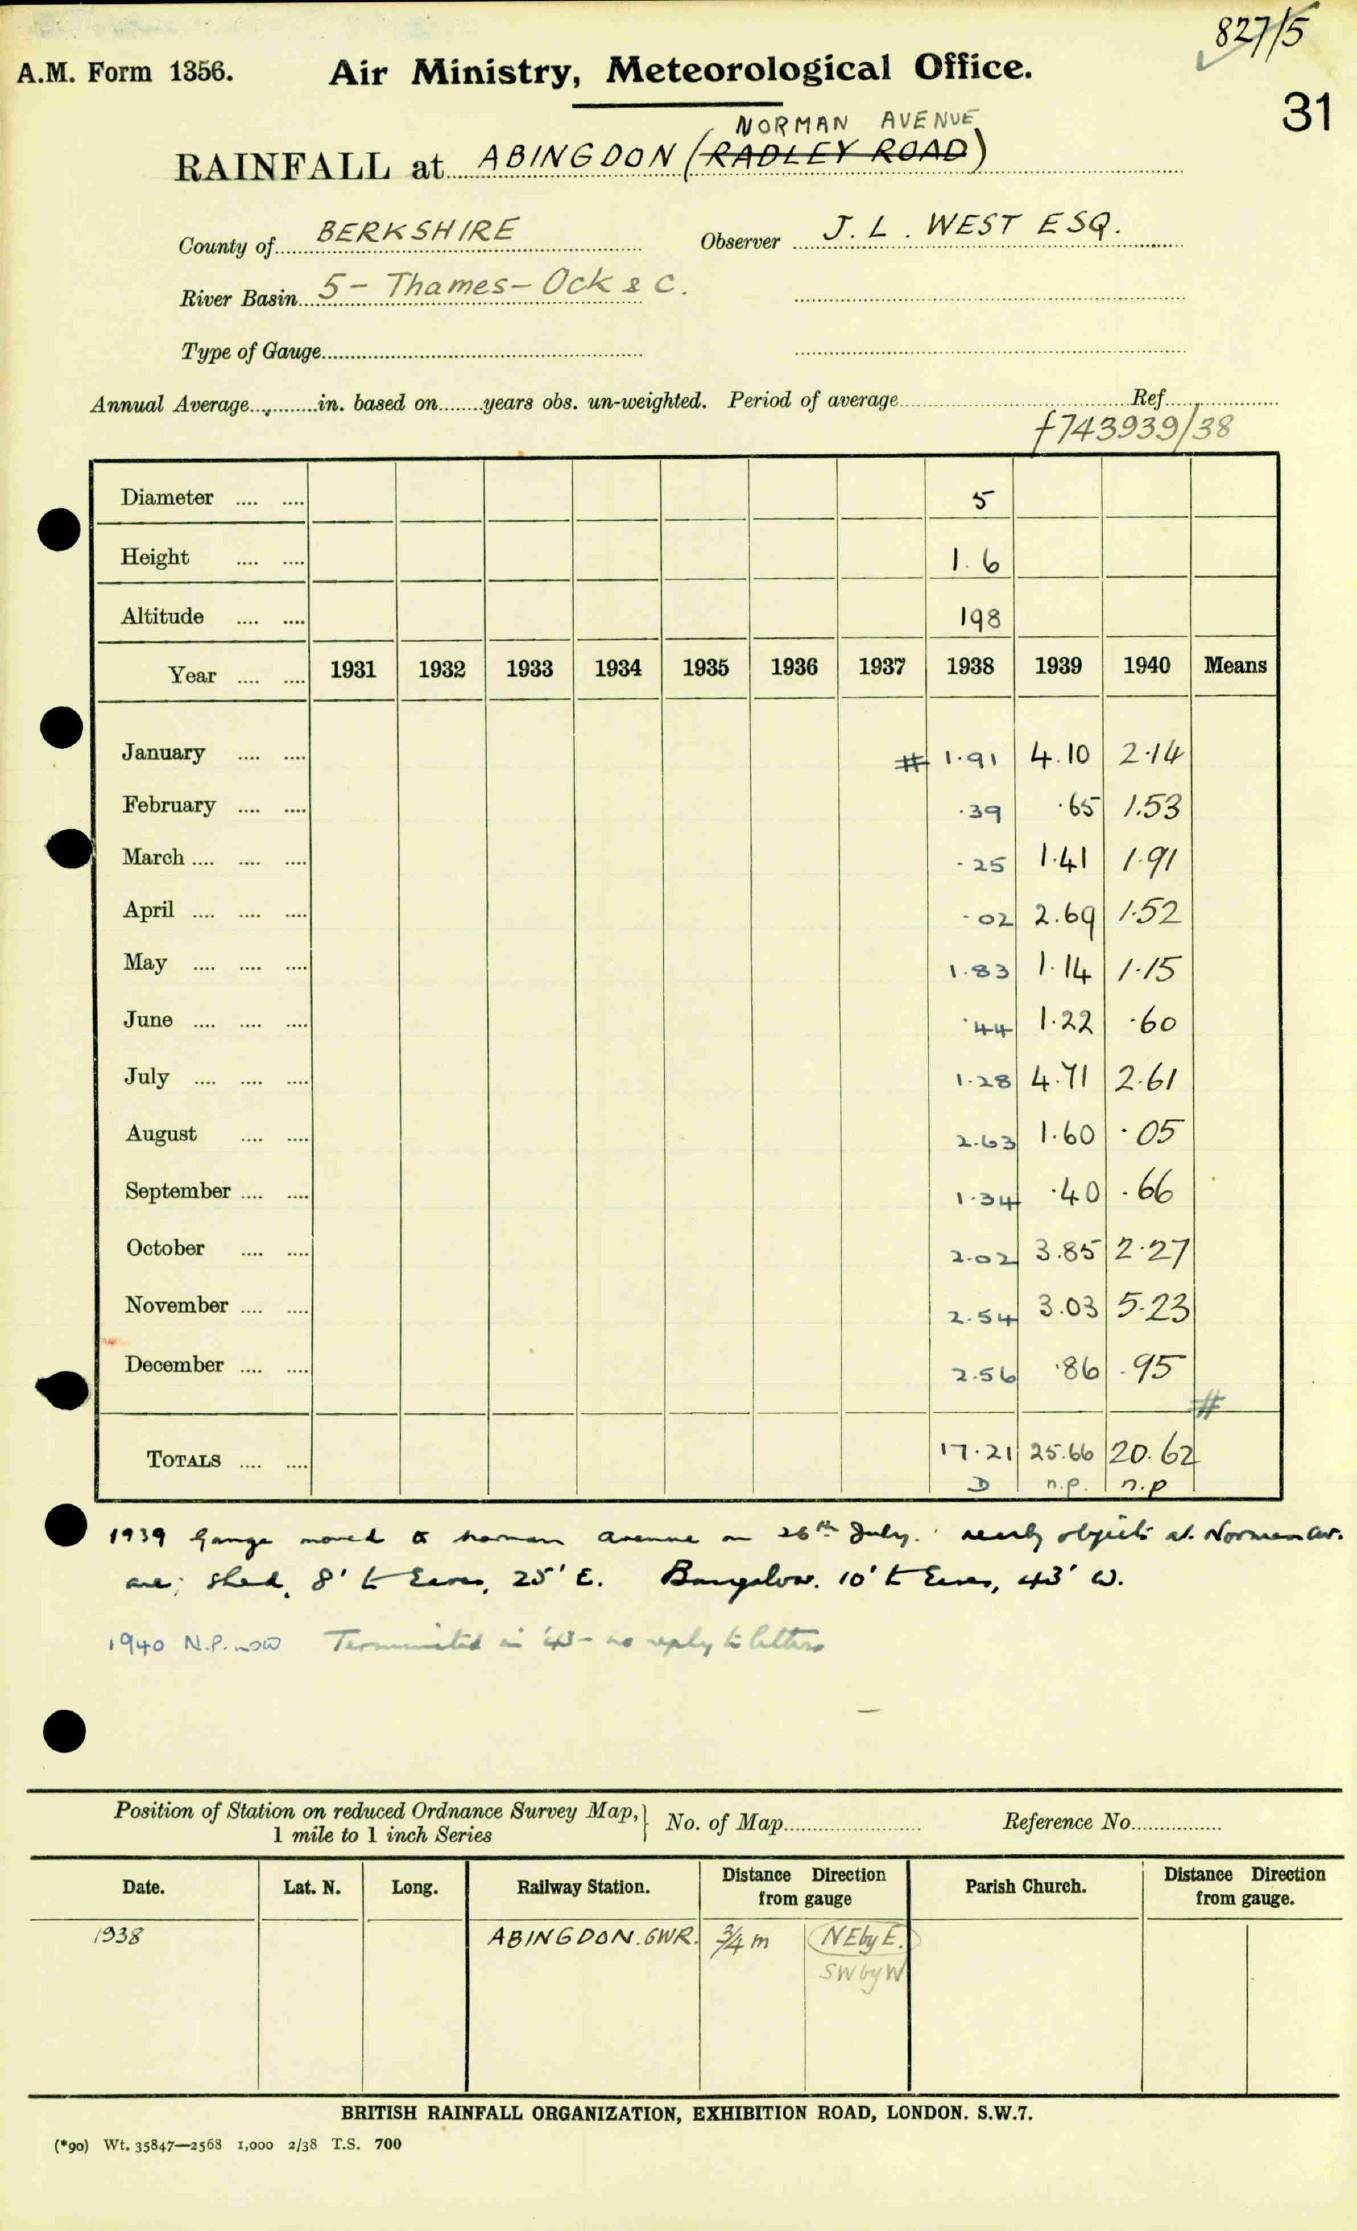 827/5
A.M. Form 1356. Air Ministry, Meteorological Office.
31
NORMAN AVENUE
RAINFALL at ABINGDON (RADLEY ROAD)
County of BERKSHIRE Observer J. L. WEST ESQ.
River Basin 5 - Thames - Ock & C.
Type of Gauge
Annual Average in. based on years obs. un-weighted. Period of average Ref.
f743939/38
Diameter 5
Height 1.6
Altitude 198
Year 1931 1932 1933 1934 1935 1936 1937 1938 1939 1940 Means
January # 1.91 4.10 2.14
February .39 .65 1.53
March .25 1.41 1.91
April .02 2.69 1.52
May 1.83 1.14 1.15
June .44 1.22 .60
July 1.28 4.71 2.61
August 2.63 1.60 .05
September 1.34 .40 .66
October 2.02 3.85 2.27
November 2.54 3.03 5.23
December 2.56 .86 .95
#
TOTALS 17.21 25.66 20.62
D n.p. n.p
1939 Gauge moved to Norman Avenue on 26th July. nearby objects at Norman Av.
are; shed, 8' to Eaves, 25' E. Bungalow. 10' to Eaves, 43' W.
1940 N.P. now Terminated in '43 - no reply to letters
Position of Station on reduced Ordnance Survey Map, 1 mile to 1 inch Series } No. of Map Reference No.
Date. Lat. N. Long. Railway Station. Distance Direction from gauge Parish Church. Distance Direction from gauge.
1938 ABINGDON. GWR. 3/4 m NE by E.
SW by W
BRITISH RAINFALL ORGANIZATION, EXHIBITION ROAD, LONDON. S.W.7.
(*90) Wt. 35847—2568 1,000 2/38 T.S. 700